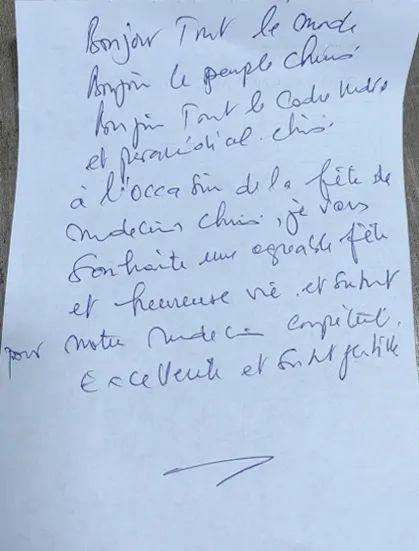 Bonjour Tout le monde
Bonjour le peuple chinois
Bonjour Tout le Cadre
et paramédical chinois.
à l'occasion de la fête de
médecins chinois, je vous
souhaite une agréable fête
et heureuse vie. et surtout
pour notre médecin compétent.
Excellente et surtout gentille